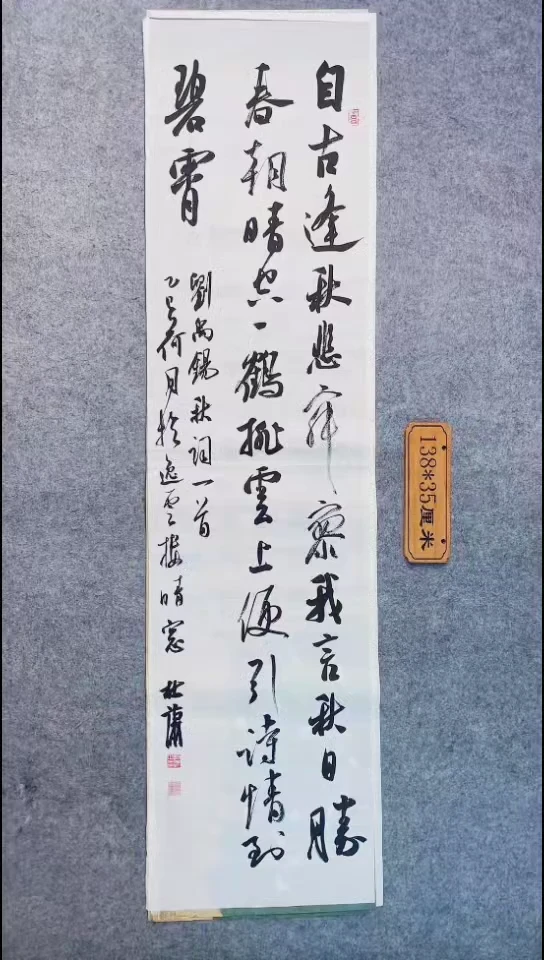 自古逢秋悲寂寥我言秋日勝
春朝晴空一鶴排雲上便引詩情到
碧霄
劉禹錫秋詞一首
乙巳荷月於逸雲樓晴窓
138*35厘米